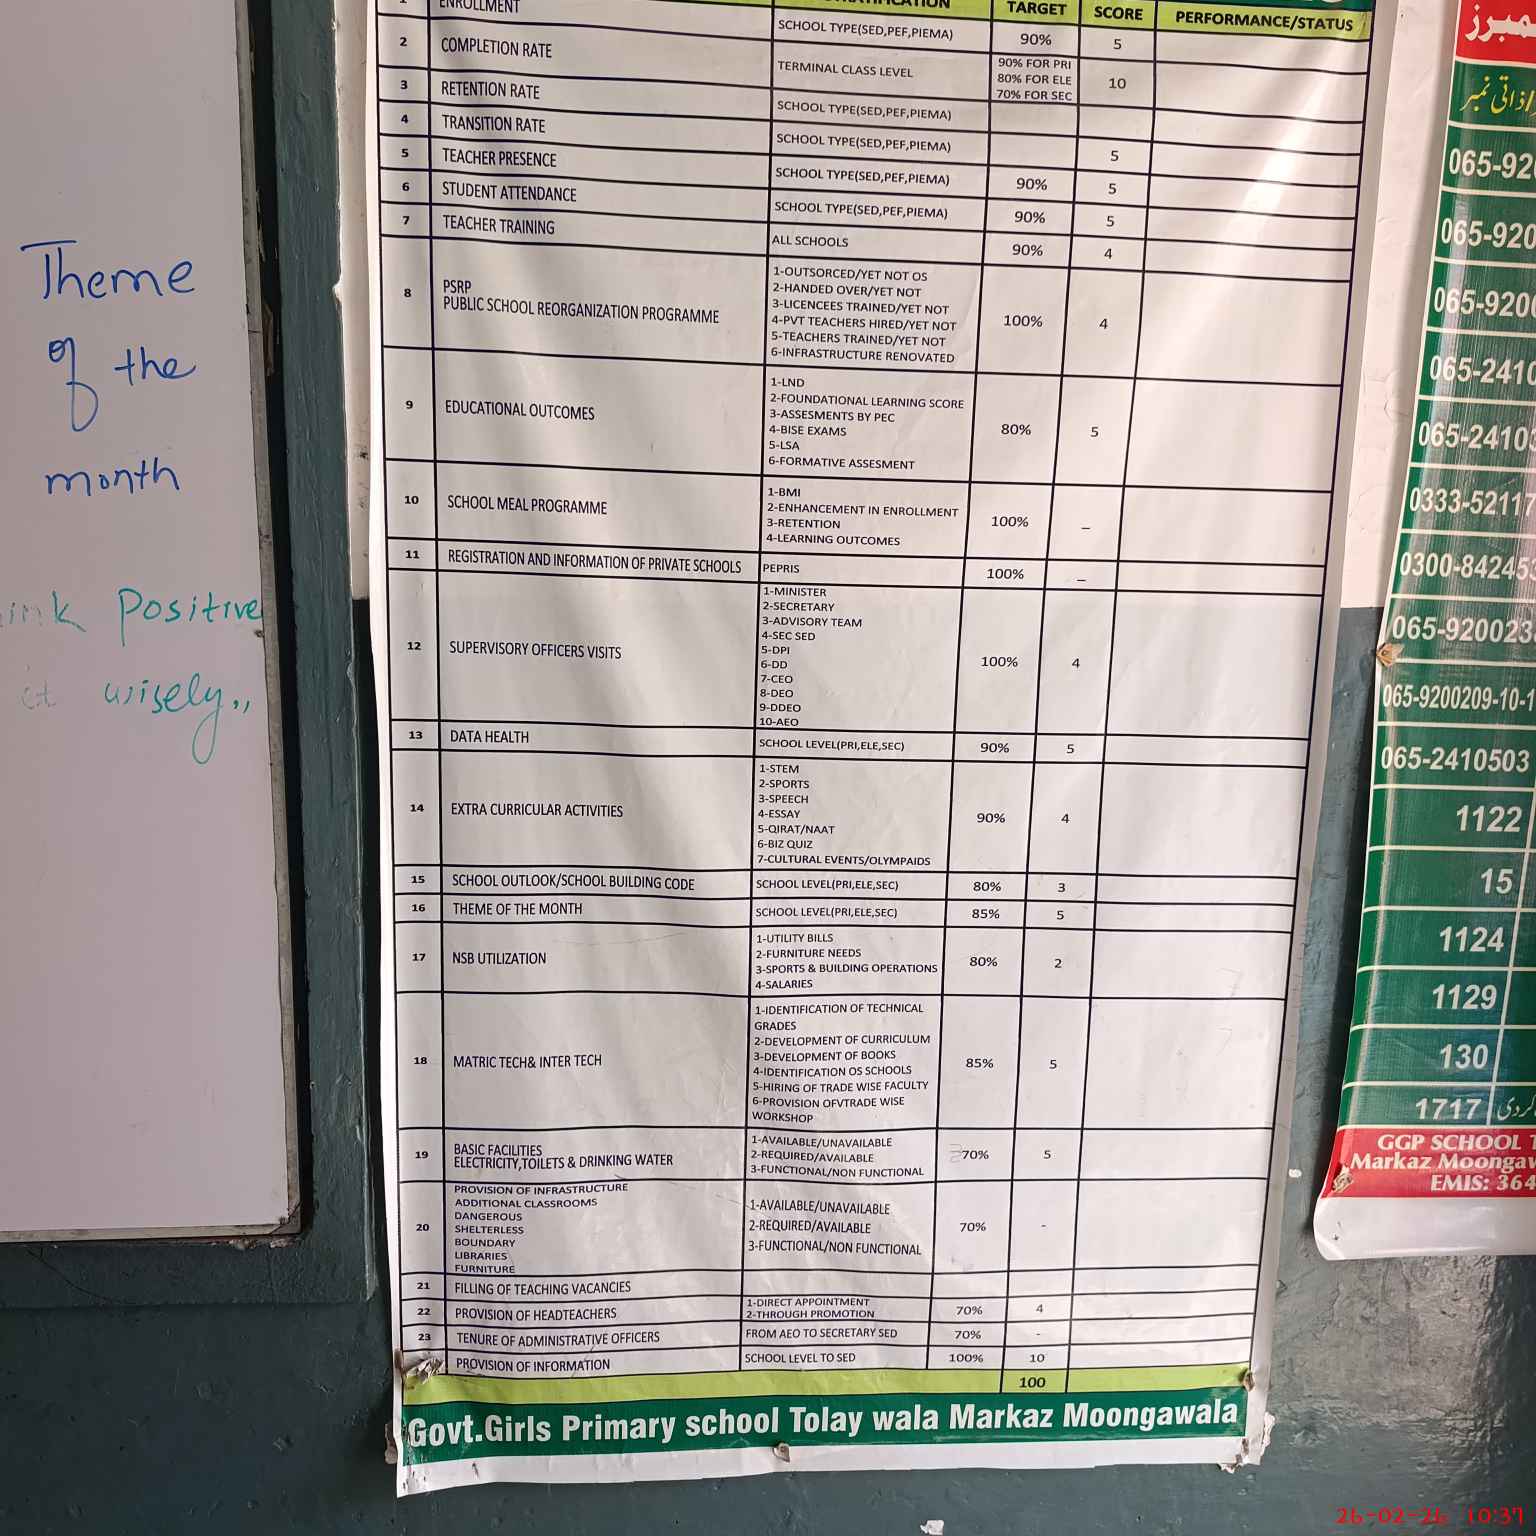 Theme
of the
month
Positive
wisely.,
TARGET SCORE PERFORMANCE/STATUS
1 ENROLLMENT SCHOOL TYPE(SED,PEF,PIEMA) 90% 5
2 COMPLETION RATE TERMINAL CLASS LEVEL 90% FOR PRI
80% FOR ELE
70% FOR SEC 10
3 RETENTION RATE SCHOOL TYPE(SED,PEF,PIEMA)
4 TRANSITION RATE SCHOOL TYPE(SED,PEF,PIEMA) 5
5 TEACHER PRESENCE SCHOOL TYPE(SED,PEF,PIEMA) 90% 5
6 STUDENT ATTENDANCE SCHOOL TYPE(SED,PEF,PIEMA) 90% 5
7 TEACHER TRAINING ALL SCHOOLS 90% 4
8 PSRP
PUBLIC SCHOOL REORGANIZATION PROGRAMME
1-OUTSORCED/YET NOT OS
2-HANDED OVER/YET NOT
3-LICENCEES TRAINED/YET NOT
4-PVT TEACHERS HIRED/YET NOT
5-TEACHERS TRAINED/YET NOT
6-INFRASTRUCTURE RENOVATED
100% 4
9 EDUCATIONAL OUTCOMES
1-LND
2-FOUNDATIONAL LEARNING SCORE
3-ASSESMENTS BY PEC
4-BISE EXAMS
5-LSA
6-FORMATIVE ASSESMENT
80% 5
10 SCHOOL MEAL PROGRAMME
1-BMI
2-ENHANCEMENT IN ENROLLMENT
3-RETENTION
4-LEARNING OUTCOMES
100% _
11 REGISTRATION AND INFORMATION OF PRIVATE SCHOOLS PEPRIS 100% _
12 SUPERVISORY OFFICERS VISITS
1-MINISTER
2-SECRETARY
3-ADVISORY TEAM
4-SEC SED
5-DPI
6-DD
7-CEO
8-DEO
9-DDEO
10-AEO
100% 4
13 DATA HEALTH SCHOOL LEVEL(PRI,ELE,SEC) 90% 5
14 EXTRA CURRICULAR ACTIVITIES
1-STEM
2-SPORTS
3-SPEECH
4-ESSAY
5-QIRAT/NAAT
6-BIZ QUIZ
7-CULTURAL EVENTS/OLYMPAIDS
90% 4
15 SCHOOL OUTLOOK/SCHOOL BUILDING CODE SCHOOL LEVEL(PRI,ELE,SEC) 80% 3
16 THEME OF THE MONTH SCHOOL LEVEL(PRI,ELE,SEC) 85% 5
17 NSB UTILIZATION
1-UTILITY BILLS
2-FURNITURE NEEDS
3-SPORTS & BUILDING OPERATIONS
4-SALARIES
80% 2
18 MATRIC TECH& INTER TECH
1-IDENTIFICATION OF TECHNICAL
GRADES
2-DEVELOPMENT OF CURRICULUM
3-DEVELOPMENT OF BOOKS
4-IDENTIFICATION OS SCHOOLS
5-HIRING OF TRADE WISE FACULTY
6-PROVISION OFVTRADE WISE
WORKSHOP
85% 5
19 BASIC FACILITIES
ELECTRICITY,TOILETS & DRINKING WATER
1-AVAILABLE/UNAVAILABLE
2-REQUIRED/AVAILABLE
3-FUNCTIONAL/NON FUNCTIONAL
70% 5
20 PROVISION OF INFRASTRUCTURE
ADDITIONAL CLASSROOMS
DANGEROUS
SHELTERLESS
BOUNDARY
LIBRARIES
FURNITURE
1-AVAILABLE/UNAVAILABLE
2-REQUIRED/AVAILABLE
3-FUNCTIONAL/NON FUNCTIONAL
70% -
21 FILLING OF TEACHING VACANCIES
22 PROVISION OF HEADTEACHERS
1-DIRECT APPOINTMENT
2-THROUGH PROMOTION
70% 4
23 TENURE OF ADMINISTRATIVE OFFICERS FROM AEO TO SECRETARY SED 70% -
PROVISION OF INFORMATION SCHOOL LEVEL TO SED 100% 10
100
Govt.Girls Primary school Tolay wala Markaz Moongawala
ذاتی نمبر
065-920
065-920
065-920
065-2410
065-2410
0333-52117
0300-84245
065-920023
065-9200209-10-1
065-2410503
1122
15
1124
1129
130
1717
GGP SCHOOL T
Markaz Moongaw
EMIS: 364
26-02-26 10:37